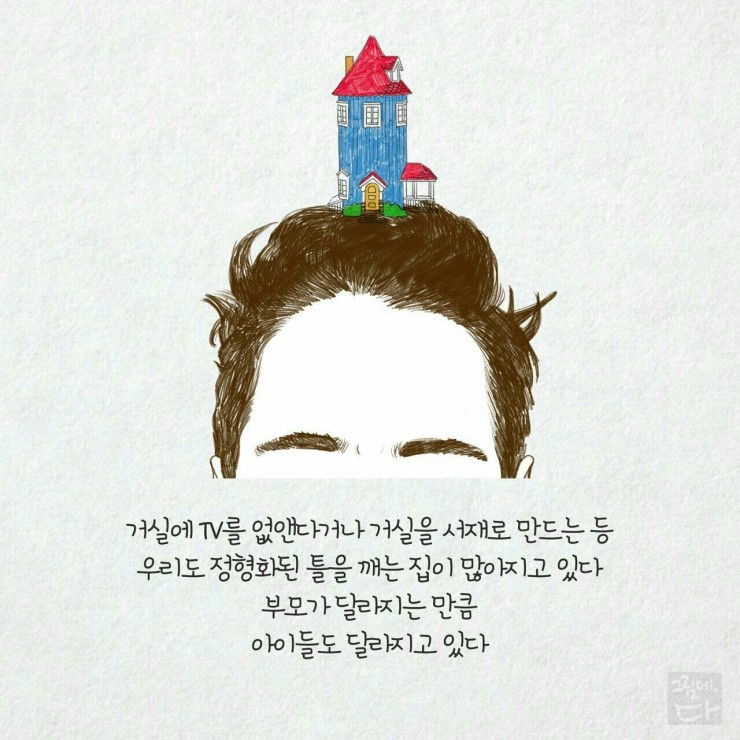 거실에 TV를 없앤다거나 거실을 서재로 만드는 등
우리도 정형화된 틀을 깨는 집이 많아지고 있다
부모가 달라지는 만큼
아이들도 달라지고 있다
그림에.
다